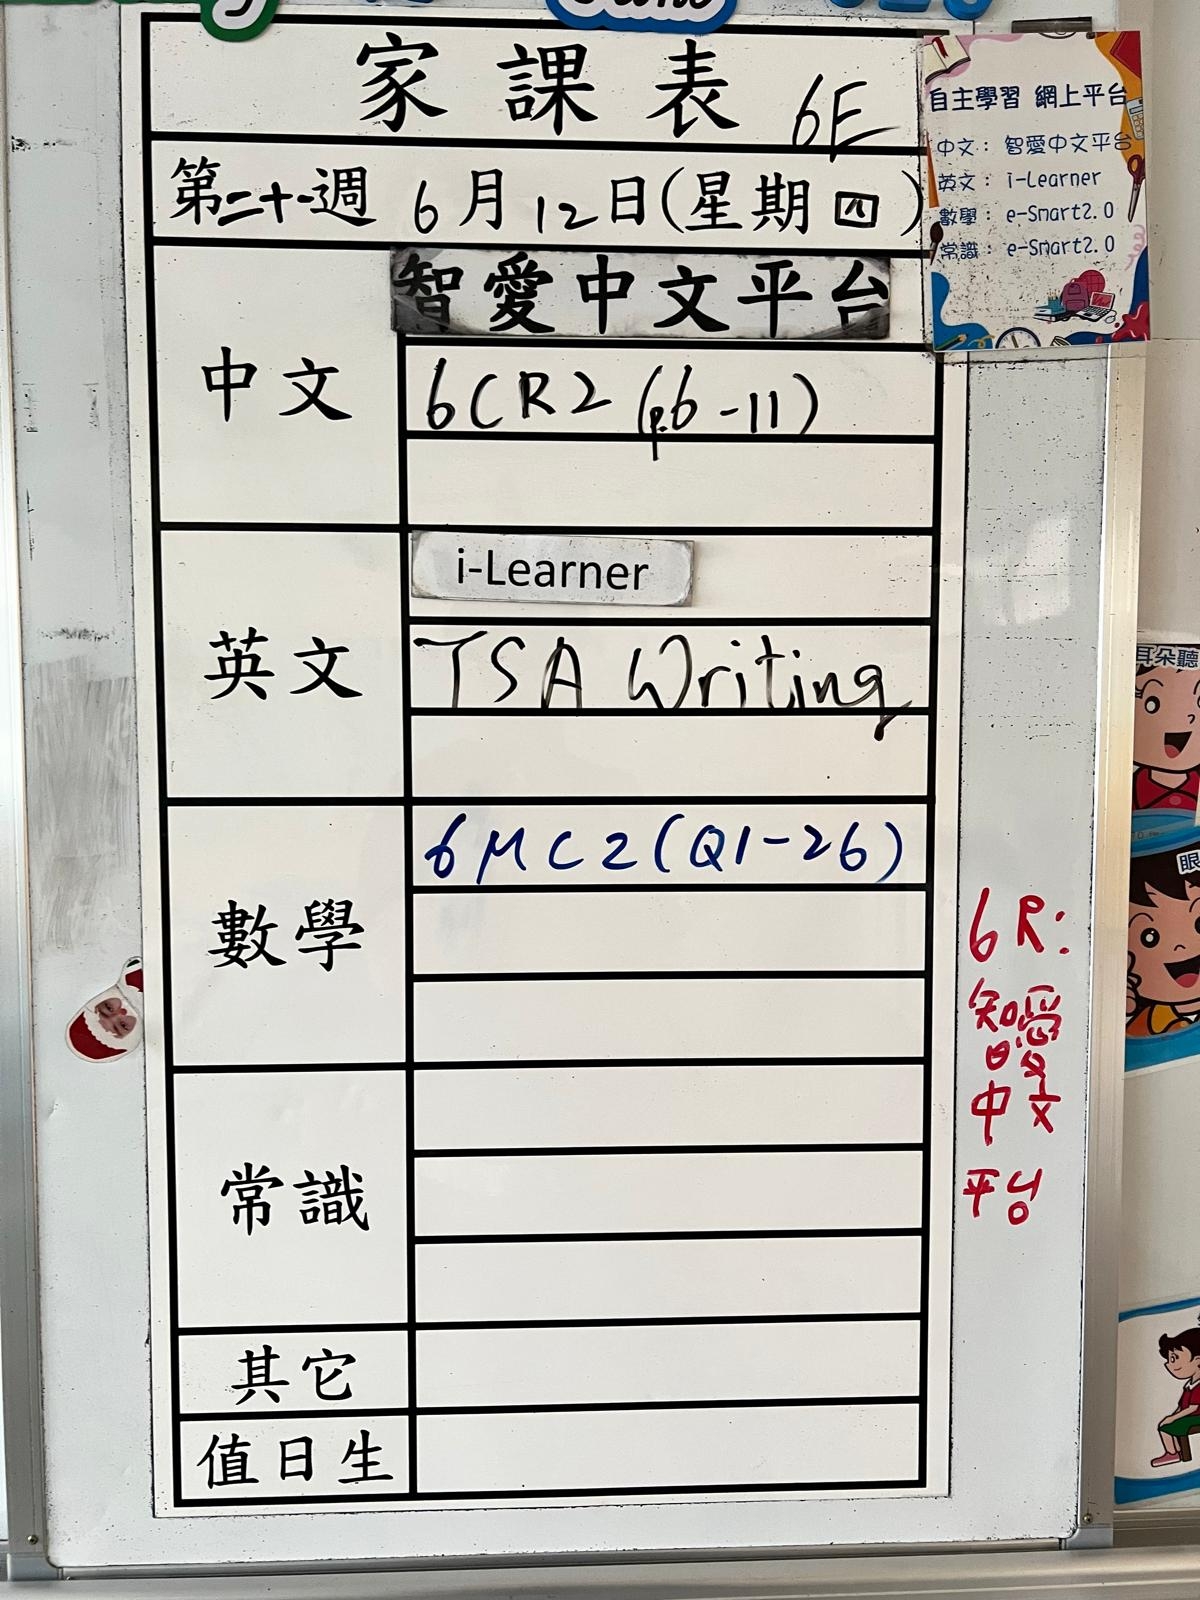 家課表 6E
第二十一週 6月12日(星期四)
中文
智愛中文平台
6CR2 (p.6-11)
英文
i-Learner
TSA Writing
數學
6MC2(Q1-26)
常識
其它
值日生
自主學習 網上平台
中文： 智愛中文平台
英文： i-Learner
數學： e-Smart2.0
常識： e-Smart2.0
6R:
智愛
中文
平台
耳朵聽
眼